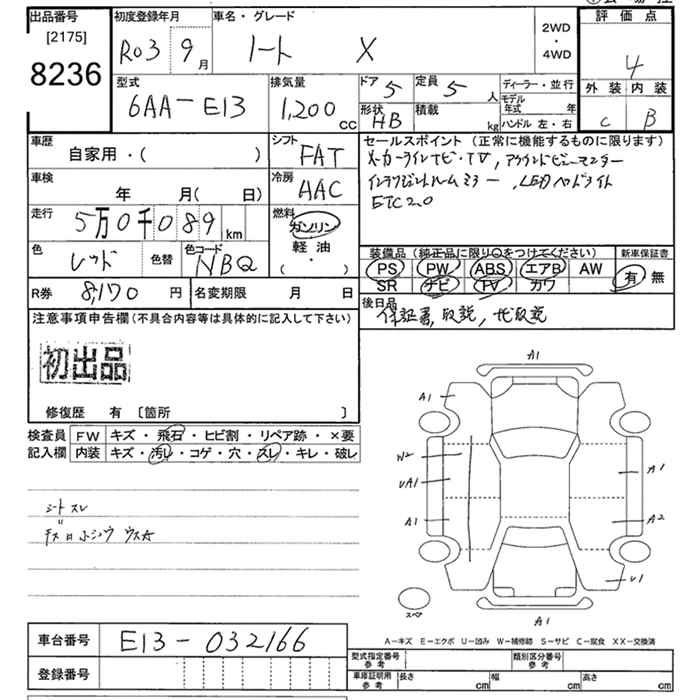 出品番号 初度登録年月 車名・グレード 評価点
[2175]
8236
R03 9月 ノート X
2WD
・
4WD
4
型式 排気量 ドア 5 定員 5人 ディーラー・並行 外装 内装
6AA-E13 1,200cc 形状 HB 積載 kg モデル年式 年
ハンドル 左・右 C B
車歴 シフト セールスポイント (正常に機能するものに限ります)
自家用・( ) FAT
メーカーラインナビ・TV, アラウンドビューモニター
車検 冷房
年 月( 日) AAC
インテリジェントルームミラー, LEDヘッドライト
ETC2.0
走行 5万0千089km 燃料 ガソリン
軽油
( ・ )
色 レッド 色替 色コード NBQ
装備品 (純正品に限り○をつけてください) 新車保証書
PS PW ABS エアB AW 有・無
SR ナビ TV カワ
R券 8,170円 名変期限 月 日
後日品
保証書, 取説, ナビ取説
注意事項申告欄(不具合内容等は具体的に記入して下さい)
初出品
修復歴 有 〔箇所 〕
検査員 FW キズ・飛石・ヒビ割・リペア跡・×要
記入欄 内装 キズ・汚レ・コゲ・穴・スレ・キレ・破レ
シート スレ
A1
A1
W2
UA1
A1
A1
A2
U1
スペア
A1
A-キズ E-エクボ U-凹み W-補修跡 S-サビ C-腐食 XX-交換済
車台番号 E13-032166
型式指定番号 参考 類別区分番号 参考
登録番号
車庫証明用 参考 長さ cm 幅 cm 高さ cm